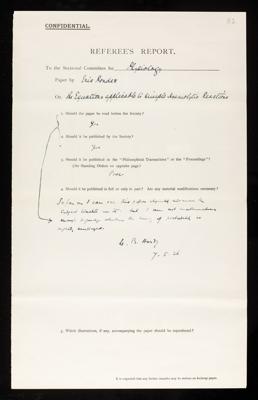 CONFIDENTIAL.
REFEREE'S REPORT.
To the Sectional Committee for Physiology
Paper by Eric Ponder
On The Equations applicable to Simple Haemolytic Reactions
1. Should the paper be read before the Society?
Yes
2. Should it be published by the Society?
Yes
3. Should it be published in the "Philosophical Transactions" or the "Proceedings"?
(See Standing Orders on opposite page)
Proc
4. Should it be published in full or only in part? Are any material modifications necessary?
So far as I can see this paper should advance the
subject but I am not mathematician
enough to judge whether the theory of probability is
rightly employed.
W. B. Hardy
7.5.26
5. Which illustrations, if any, accompanying the paper should be reproduced?
It is requested that any further remarks may be written on foolscap paper.